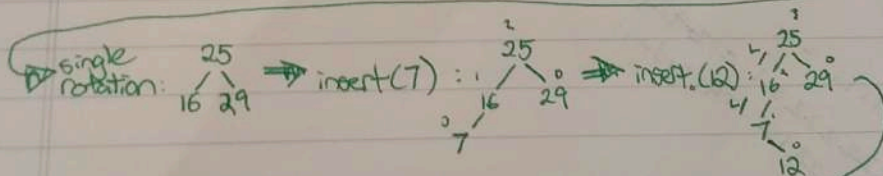 single rotation: 25 16 29 ⇒ insert(7) : 2 25 1 16 0 29 0 7 ⇒ insert(12) : 3 25 L 2 16 0 29 L 1 7 0 12